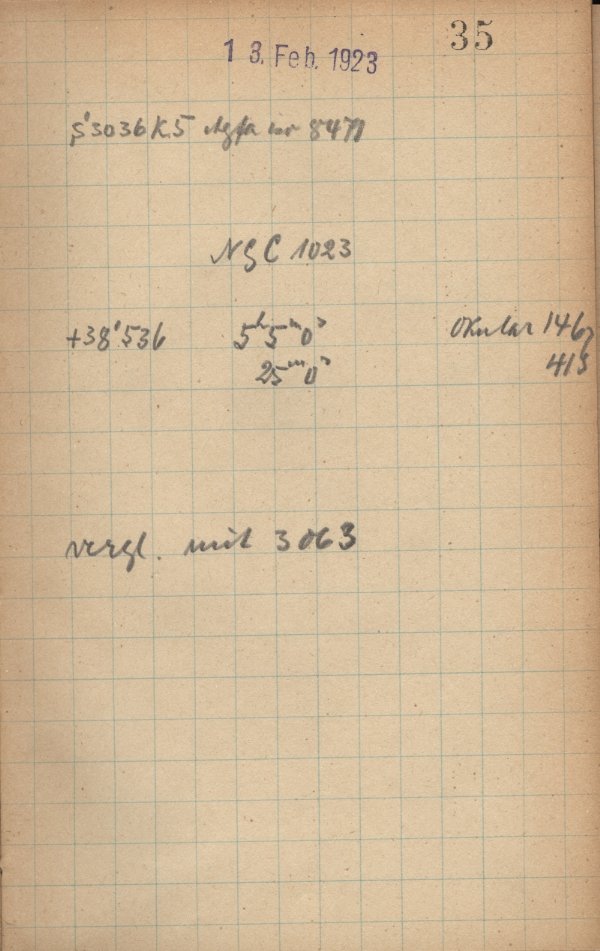 35
13. Feb. 1923
S'3036 K5 Agfa nr 8471
NGC 1023
+38°536 5h5m0s Okular 146,
25m0s 413
vergl. mit 3063